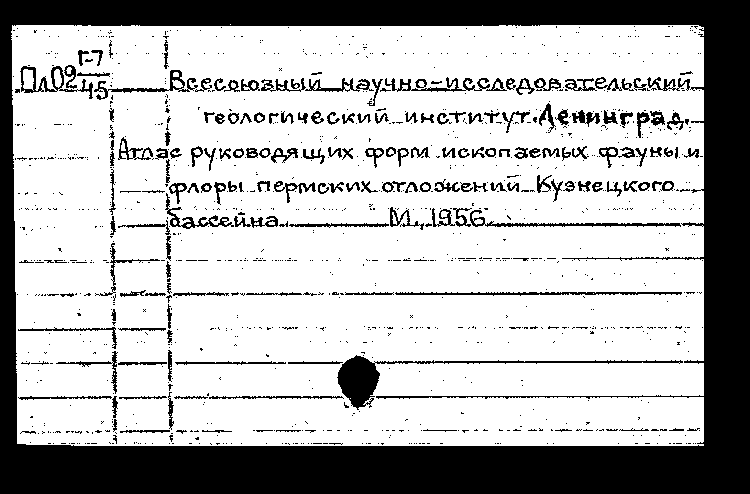 Г-7
Пл02 45
Всесоюзный научно-исследовательский
геологический институт. Ленинград.
Атлас руководящих форм ископаемых фауны и
флоры пермских отложений Кузнецкого
бассейна М., 1956.